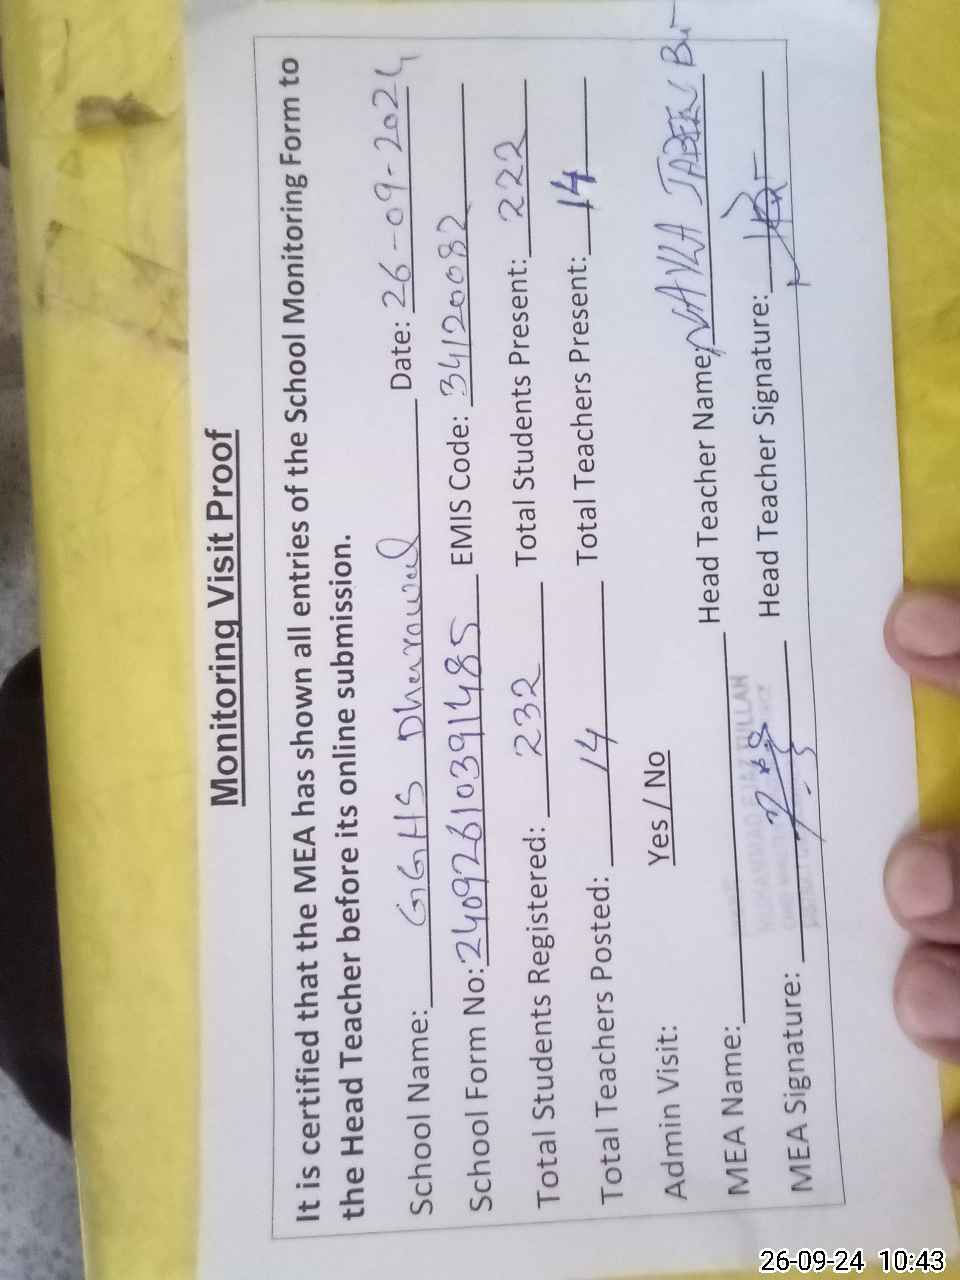 Monitoring Visit Proof
It is certified that the MEA has shown all entries of the School Monitoring Form to
the Head Teacher before its online submission.
School Name: GGHS Dhurowul Date: 26-09-2024
School Form No: 24092610391485 EMIS Code: 34120082
Total Students Registered: 232 Total Students Present: 222
Total Teachers Posted: 14 Total Teachers Present: 14
Admin Visit: Yes / No
MEA Name: Head Teacher Name:
MUHAMMAD EJAZ ULLAH
MEA Signature: Head Teacher Signature:
26-09-24 10:43